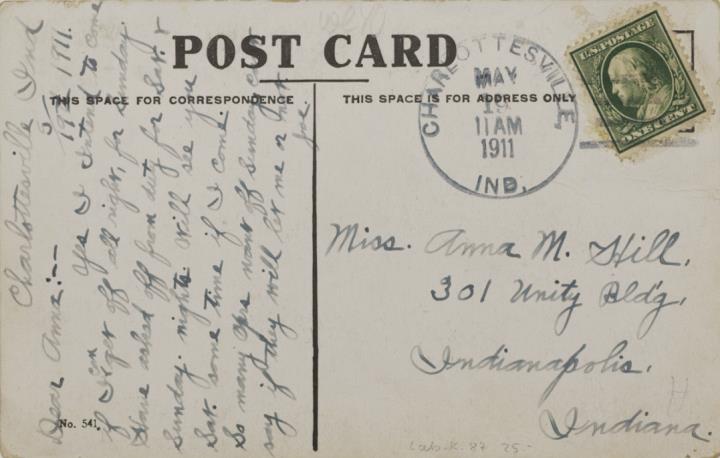 POST CARD
THIS SPACE FOR CORRESPONDENCE
THIS SPACE IS FOR ADDRESS ONLY
CHARLOTTESVILLE,
MAY
19
11AM
1911
IND.
U.S. POSTAGE
ONE CENT
Charlottesville Ind
5/18 1911.
Dear Anna:--
Yes I intend to come
if I can get off all right, for Sunday.
Have asked off from duty for Sat. &
Sunday nights. Will see you
Sat. some time if I come.
So many Ops want off Sunday
say if they will let me or not.
Joe.
Miss. Anna M. Hill,
301 Unity Bld'g,
Indianapolis.
Indiana.
No. 541.
87 25-